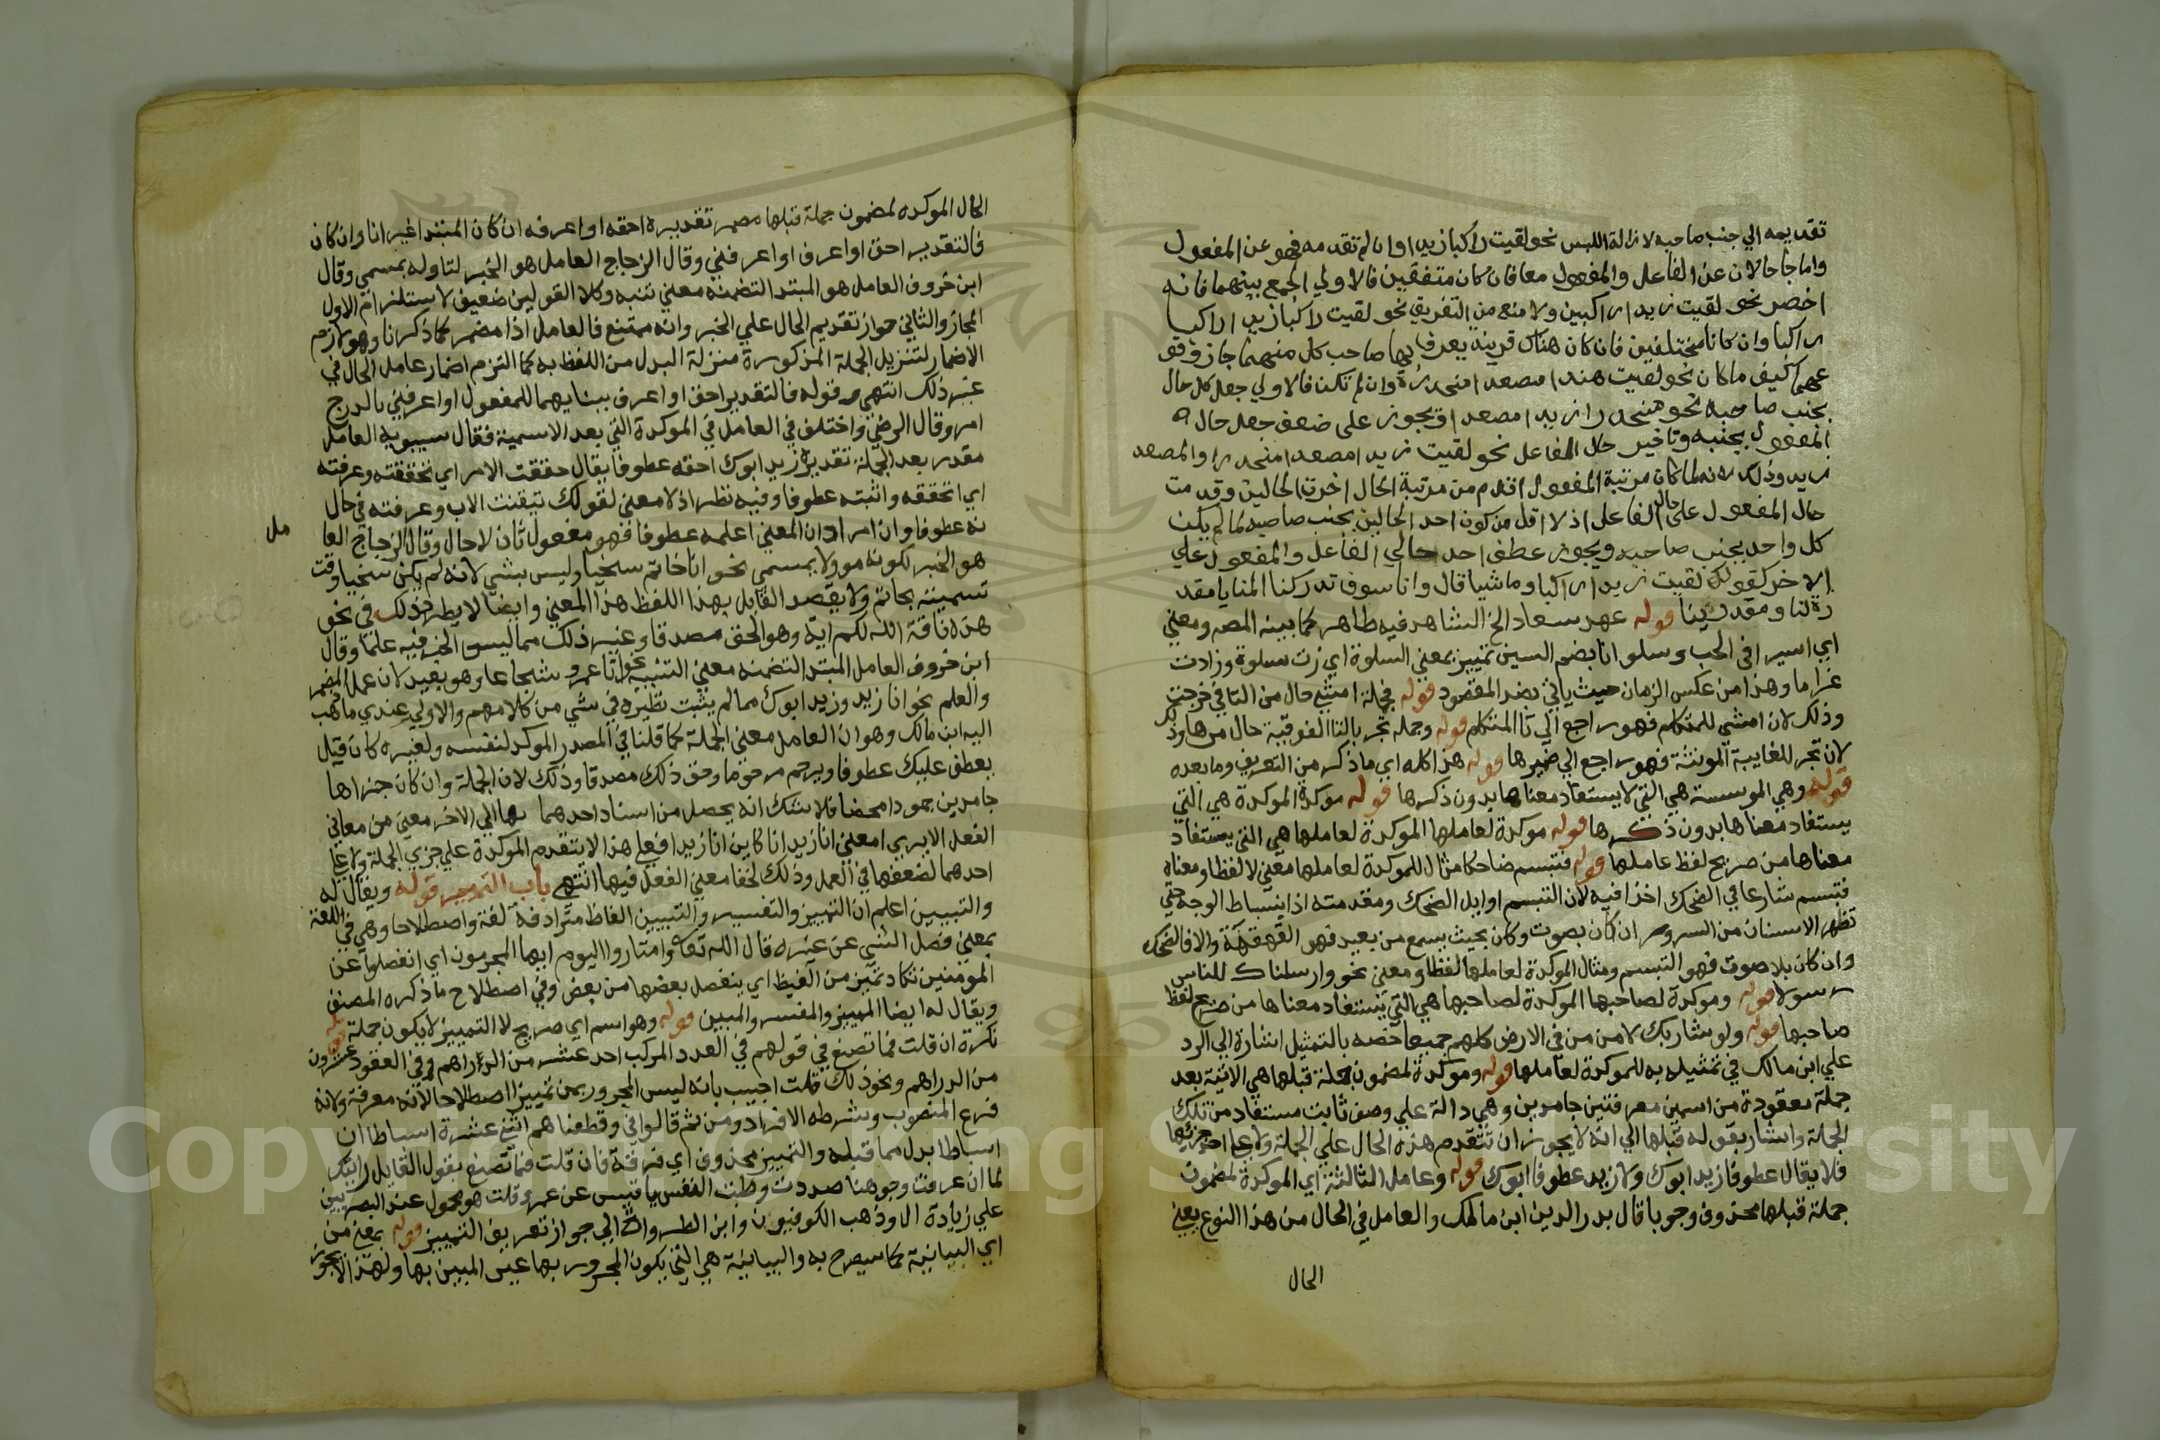 تقديمه الي جنب صاحبه لازالة اللبس نحو لقيت راكبا زيدا وان لم تقدمه فهو عن المفعول
واما جا حالان عن الفاعل والمفعول معا فان كان متفقين فالاولي الجمع بينهما فانه
اخصر نحو لقيت زيدا راكبين ولا منع من التفريق نحو لقيت راكبا زيدا راكبا
راكبا وان كانا مختلفين فان كان هناك قرينة يعرف بها صاحب كل منهما جاز وقو
عهما كيف ما كان نحو لقيت هندا مصعدا منحدرة وان لم تكن فالاولي جعل كل حال
بجنب صاحبه نحو منحدرا زيدا مصعدا ويجوز على ضعف جعل حال
المفعول بجنبه وتاخير حال الفاعل نحو لقيت زيدا مصعدا منحدرا والمصعد
زيد وذلك لانه لما كان مرتبة المفعول اقدم من مرتبة الحال اخرت الحالين وقدمت
حال المفعول على حال الفاعل اذ لا اقل من كون احد الحالين بجنب صاحبه لما لم يكن
كل واحد بجنب صاحبه ويجوز عطف احد حالي الفاعل والمفعول علي
الاخر كقولك لقيت زيدا راكبا وماشيا قال وانا سوف تدركنا المنايا مقد
رة لنا ومقدرينا قوله عهدت سعاد الخ الشاهد فيه ظاهر كما بينه المصه ومعني
اي اسيرا في الحب وسلوانا بضم السين تمييز بمعني السلوة اي زت سلوة وزادت
غراما وهذا من عكس الزمان حيث ياتي بضد المقصود قوله فجملة امشي حال من التا في خرجت
وذلك لان امشي للمتكلم فهو راجع الي تا المتكلم قوله وجملة تجر بالتا الفوقية حال من ها وذلك
لان تجر للغايبة المونثة فهو راجع الي ضميرها قوله هذا كله اي ما ذكر من التعريف وما بعده
قوله وهي الموسسة هي التي لا يستفاد معناها بدون ذكرها قوله موكدة الموكدة هي التي
يستفاد معناها بدون ذكرها قوله موكدة لعاملها الموكدة لعاملها هي التي يستفاد
معناها من صريح لفظ عاملها قوله فتبسم ضاحكا مثال للموكدة لعاملها معني لا لفظا ومعناه
فتبسم شارعا في الضحك اخذا فيه لان التبسم اوايل الضحك ومقدمته اذ انبساط الوجه حتي
تظهر الاسنان من السرور ان كان بصوت وكان بحيث يسمع من بعيد فهو القهقهة والا فالضحك
وان كان بلا صوت فهو التبسم ومثال الموكدة لعاملها لفظا ومعني نحو وارسلناك للناس
رسولا قوله وموكدة لصاحبها الموكدة لصاحبها هي التي يستفاد معناها من صريح لفظ
صاحبها قوله ولو شا ربك لامن من في الارض كلهم جميعا خصه بالتمثيل اشارة الي الرد
علي ابن مالك في تمثيله به للموكدة لعاملها قوله وموكدة لمضمون جملة قبلها هي الاتية بعد
جملة معقودة من اسمين معرفتين جامدين وهي دالة علي وصف ثابت مستفاد من تلك
الجملة واشار بقوله قبلها الي انه لا يجوز ان تتقدم هذه الحال علي الجملة ولا علي احد جزئيها
فلا يقال عطوفا زيد ابوك ولا زيد عطوفا ابوك قوله وعامل الثالثة اي الموكدة لمضمون
جملة قبلها محذوف وجوبا قال بدر الدين ابن مالك والعامل في الحال من هذا النوع يعني
الحال
الحال الموكده لمضمون جملة قبلها مضمر تقديره احقه او اعرفه ان كان المبتدا غير انا وان كان
فالتقدير احق او اعرف او اعرفني وقال الزجاج العامل هو الخبر لتاوله بمسمي وقال
ابن خروف العامل هو المبتدا لتضمنه معني تنبه وكلا القولين ضعيف لاستلزام الاول
المجاز والثاني جواز تقديم الحال علي الخبر وانه ممتنع فالعامل اذا مضمر كما ذكرنا وهو لازم
الاضمار لتنزيل الجملة المذكورة منزلة البدل من اللفظ به كما التزم اضمار عامل الحال في
غير ذلك انتهي وقوله فالتقدير احق او اعرف ببنايهما للمفعول او اعرفني بالدرج
امر وقال الرضي واختلف في العامل في الموكدة التي بعد الاسمية فقال سيبويه العامل
مقدر بعد الجملة تقديره زيد ابوك احقه عطوفا يقال حققت الامر اي تحققته وعرفته
اي اتحققه واثبته عطوفا وفيه نظر اذ لا معني لقولك تيقنت الاب وعرفته في حال
نه عطوفا وان اراد ان المعني اعلمه عطوفا فهو مفعول ثان لا حال وقال الزجاج العا
مل
هو الخبر لكونه موولا بمسمي نحو انا حاتم سخيا وليس بشي لانه لم يكن سخيا وقت
تسميته بحاتم ولا يقصد القايل بهذا اللفظ هذا المعني وايضا لا يطرد ذلك في نحو
هذه ناقة الله لكم اية وهو الحق مصدقا وغير ذلك مما ليس الخبر فيه علما وقال
ابن خروف العامل المبتدا لتضمنه معني التنبيه نحو انا عمرو شجاعا وهو بعيد لان عمل المضمر
والعلم نحو انا زيد وزيد ابوك مما لم يثبت نظيره في شي من كلامهم والاولي عندي ما ذهب
اليه ابن مالك وهو ان العامل معني الجملة كما قلنا في المصدر الموكد لنفسه ولغيره كان قيل
يعطف عليك عطوفا ويرحم مرحوما وحق ذلك مصدقا وذلك لان الجملة وان كان جزاها
جامدين جمودا محضا فلا شك انه يحصل من اسناد احدهما بها الي الاخر معني من معاني
الفعل الا يري ا معني انا زيد انا كاين انا زيدا فعلي هذا لا يتقدم الموكدة علي جزي الجملة ولا علي
احدهما لضعفها في العمل وذلك لخفا معني الفعل فيها انتهي باب التمييز قوله ويقال له
والتبيين اعلم ان التمييز والتفسير والتبيين الفاظ مترادفة لغة واصطلاحا وهي في اللغة
بمعني فصل الشي عن غيره قال الله تعا وامتازوا اليوم ايها المجرمون اي انفصلوا عن
المومنين تكاد تميز من الغيظ اي ينفصل بعضها من بعض وفي اصطلاح ما ذكره المصنف
ويقال له ايضا المميز والمفسر والمبين قوله وهو اسم اي صريح لا التمييز لا يكون جملة قوله
نكرة ان قلت فما تصنع في قولهم في العدد المركب احد عشر من الدراهم وفي العقود عشرون
من الدراهم ونحو ذلك قلت اجيب بانه ليس المجرور بمن تمييزا اصطلاحا لانه معرفة ولانه
فرع المنصوب وشرطه الافراد ومن ثم قالوا في وقطعناهم اثنتي عشرة اسباطا ان
اسباطا بدل مما قبله والتمييز محذوف اي فرقة فان قلت فما تصنع بقول القايل رايتك
لما ان عرفت وجوهنا صددت وطبت النفس يا قيس عن عمرو قلت هو محمول عند البصريين
علي زيادة ال وذهب الكوفيون وابن الطراوة الي جواز تعريف التمييز قوله بمعني من
اي البيانية كما سيصرح به والبيانية هي التي يكون المجرور بها عين المبين بها ولهذا لا يجوز
Copyright © King Saud University